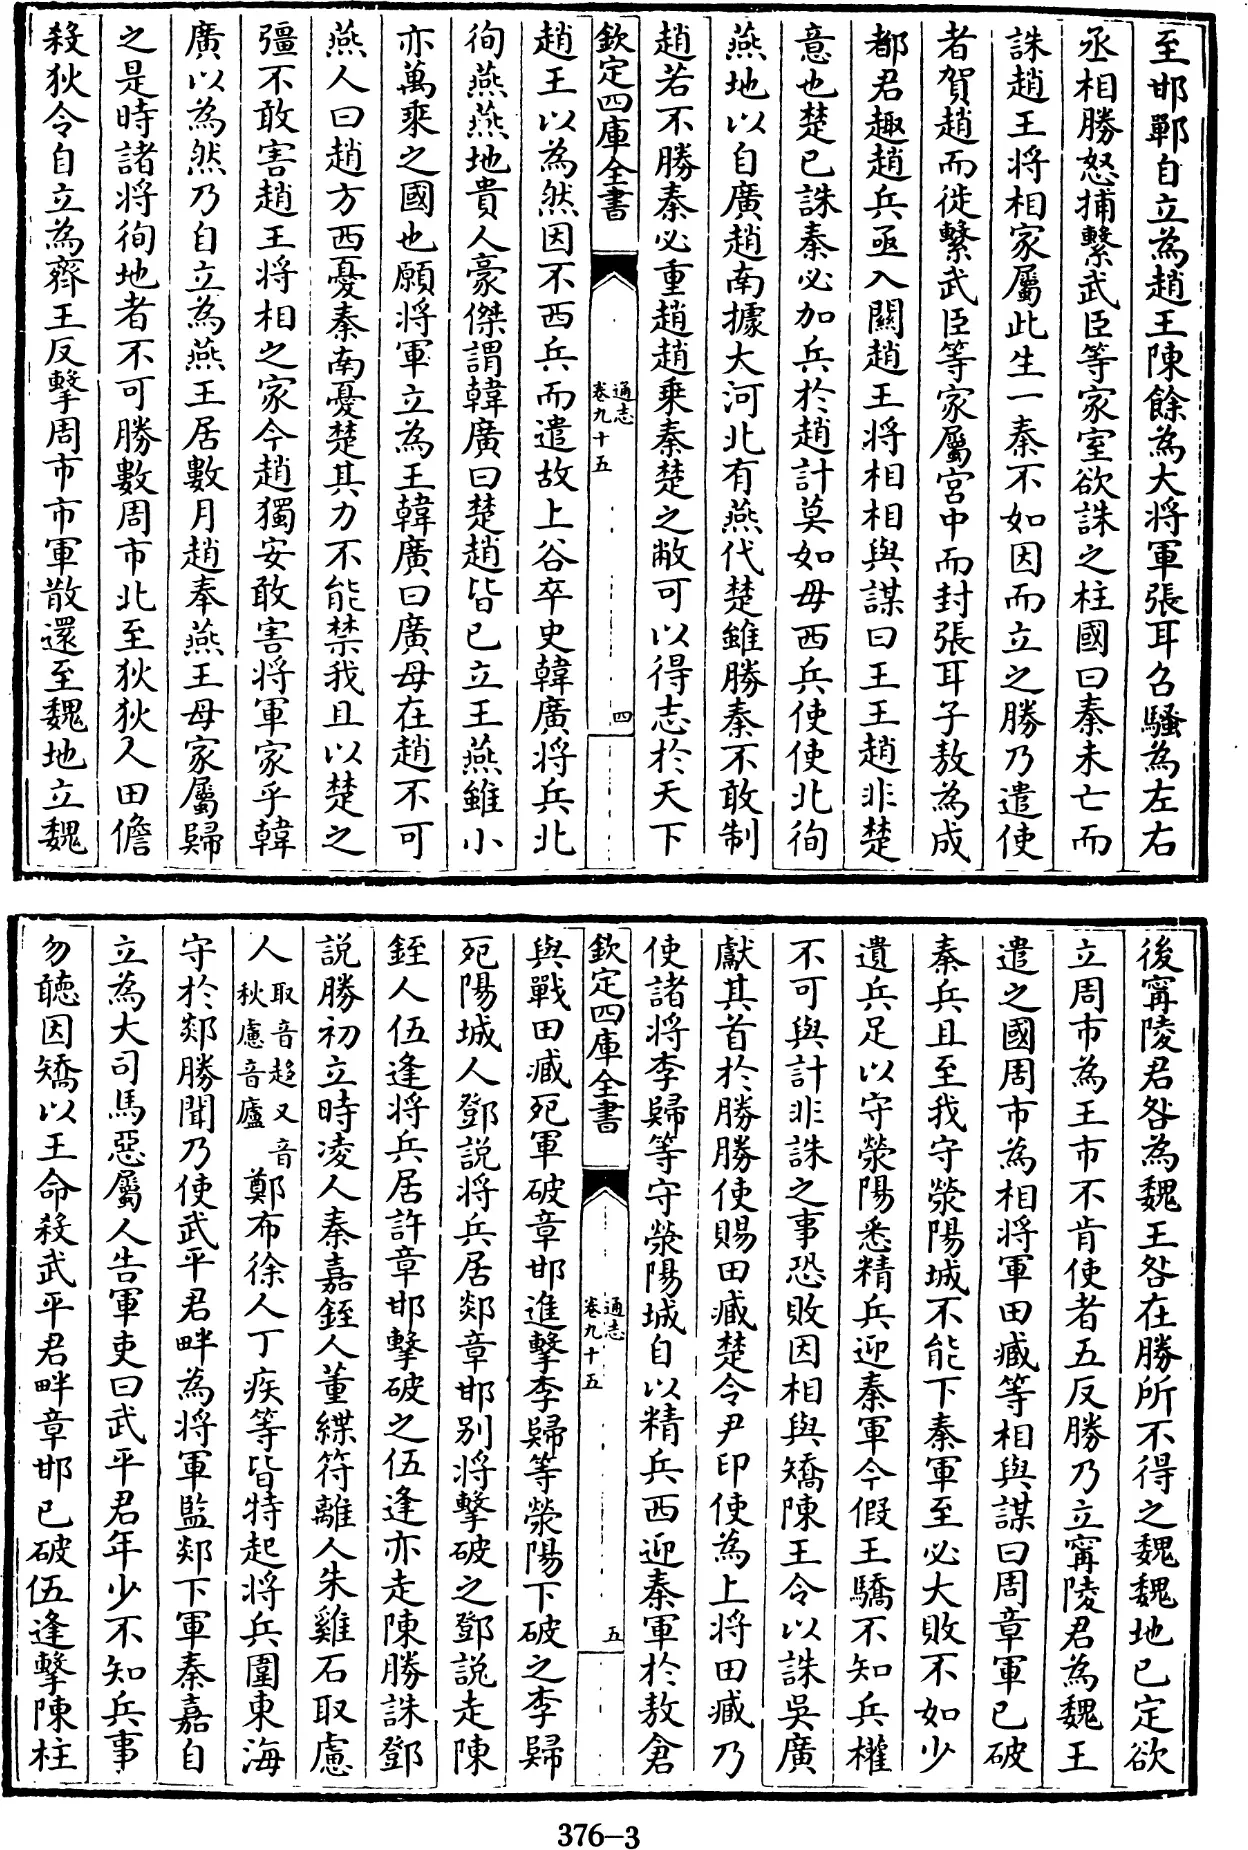 至邯鄲自立為趙王陳餘為大將軍張耳召騷為左右
丞相勝怒捕繫武臣等家室欲誅之柱國曰秦未亡而
誅趙王將相家屬此生一秦不如因而立之勝乃遣使
者賀趙而徙繫武臣等家屬宮中而封張耳子敖為成
都君趣趙兵亟入關趙王將相相與謀曰王王趙非楚
意也楚已誅秦必加兵於趙計莫如毋西兵使使北徇
燕地以自廣趙南據大河北有燕代楚雖勝秦不敢制
趙若不勝秦必重趙趙乗秦楚之敝可以得志於天下
欽定四庫全書
通志
卷九十五
四
趙王以為然因不西兵而遣故上谷卒史韓廣將兵北
徇燕燕地貴人豪傑謂韓廣曰楚趙皆已立王燕雖小
亦萬乗之國也願將軍立為王韓廣曰廣母在趙不可
燕人曰趙方西憂秦南憂楚其力不能禁我且以楚之
彊不敢害趙王將相之家今趙獨安敢害將軍家乎韓
廣以為然乃自立為燕王居數月趙奉燕王母家屬歸
之是時諸將徇地者不可勝數周市北至狄狄人田儋
殺狄令自立為齊王反擊周市市軍散還至魏地立魏
後甯陵君咎為魏王咎在勝所不得之魏魏地已定欲
立周市為王市不肯使者五反勝乃立甯陵君為魏王
遣之國周市為相將軍田臧等相與謀曰周章軍已破
秦兵且至我守滎陽城不能下秦軍至必大敗不如少
遺兵足以守滎陽悉精兵迎秦軍今假王驕不知兵權
不可與計非誅之事恐敗因相與矯陳王令以誅吳廣
獻其首於勝勝使賜田臧楚令尹印使為上將田臧乃
使諸將李歸等守滎陽城自以精兵西迎秦軍於敖倉
欽定四庫全書
通志
卷九十五
五
與戰田臧死軍破章邯進擊李歸等滎陽下破之李歸
死陽城人鄧說將兵居郯章邯别將擊破之鄧說走陳
銍人伍逢將兵居許章邯擊破之伍逢亦走陳勝誅鄧
說勝初立時凌人秦嘉銍人董緤符離人朱雞石取慮
人取音趨又音秋慮音廬鄭布徐人丁疾等皆特起將兵圍東海
守於郯勝聞乃使武平君畔為將軍監郯下軍秦嘉自
立為大司馬惡屬人告軍吏曰武平君年少不知兵事
勿聽因矯以王命殺武平君畔章邯已破伍逢擊陳柱
376-3